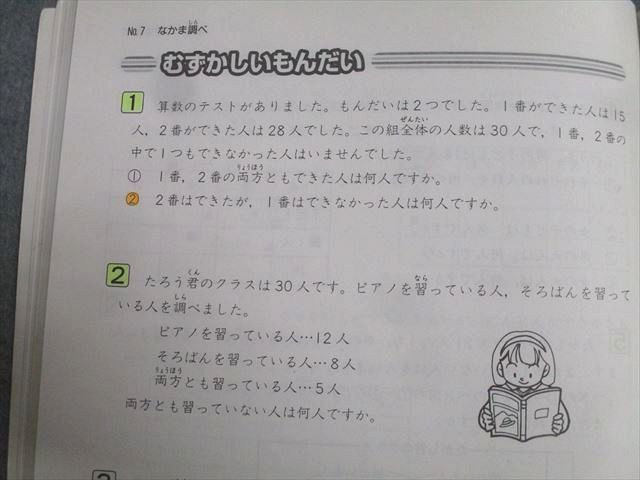 No.7 なかま調べ
しら
むずかしいもんだい
1 算数のテストがありました。もんだいは2つでした。1番ができた人は15
人，2番ができた人は28人でした。この組全体の人数は30人で，1番，2番の
ぜんたい
中で1つもできなかった人はいませんでした。
① 1番，2番の両方ともできた人は何人ですか。
りょうほう
② 2番はできたが，1番はできなかった人は何人ですか。
2 たろう君のクラスは30人です。ピアノを習っている人，そろばんを習って
くん なら
いる人を調べました。
しら
ピアノを習っている人…12人
そろばんを習っている人…8人
両方とも習っている人…5人
りょうほう
両方とも習っていない人は何人ですか。